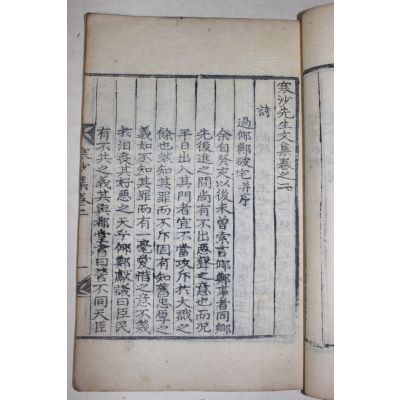 寒沙先生文集卷之二
詩
過倻鄭破宅并序
余自癸亥以後未曾索言倻鄭事者同鄉
先後進之間尚有不出惡聲之意也而况
平日出入其門者宜不當攻斥於大戮之
餘也然知其罪而不斥固有知舊忠厚之
義如不知其罪而有一毫愛惜之意不幾
於汨喪其好惡之天乎倻鄭獻議曰臣民
有不共之義其與都堂書曰 不同天臣
寒沙集卷二
一